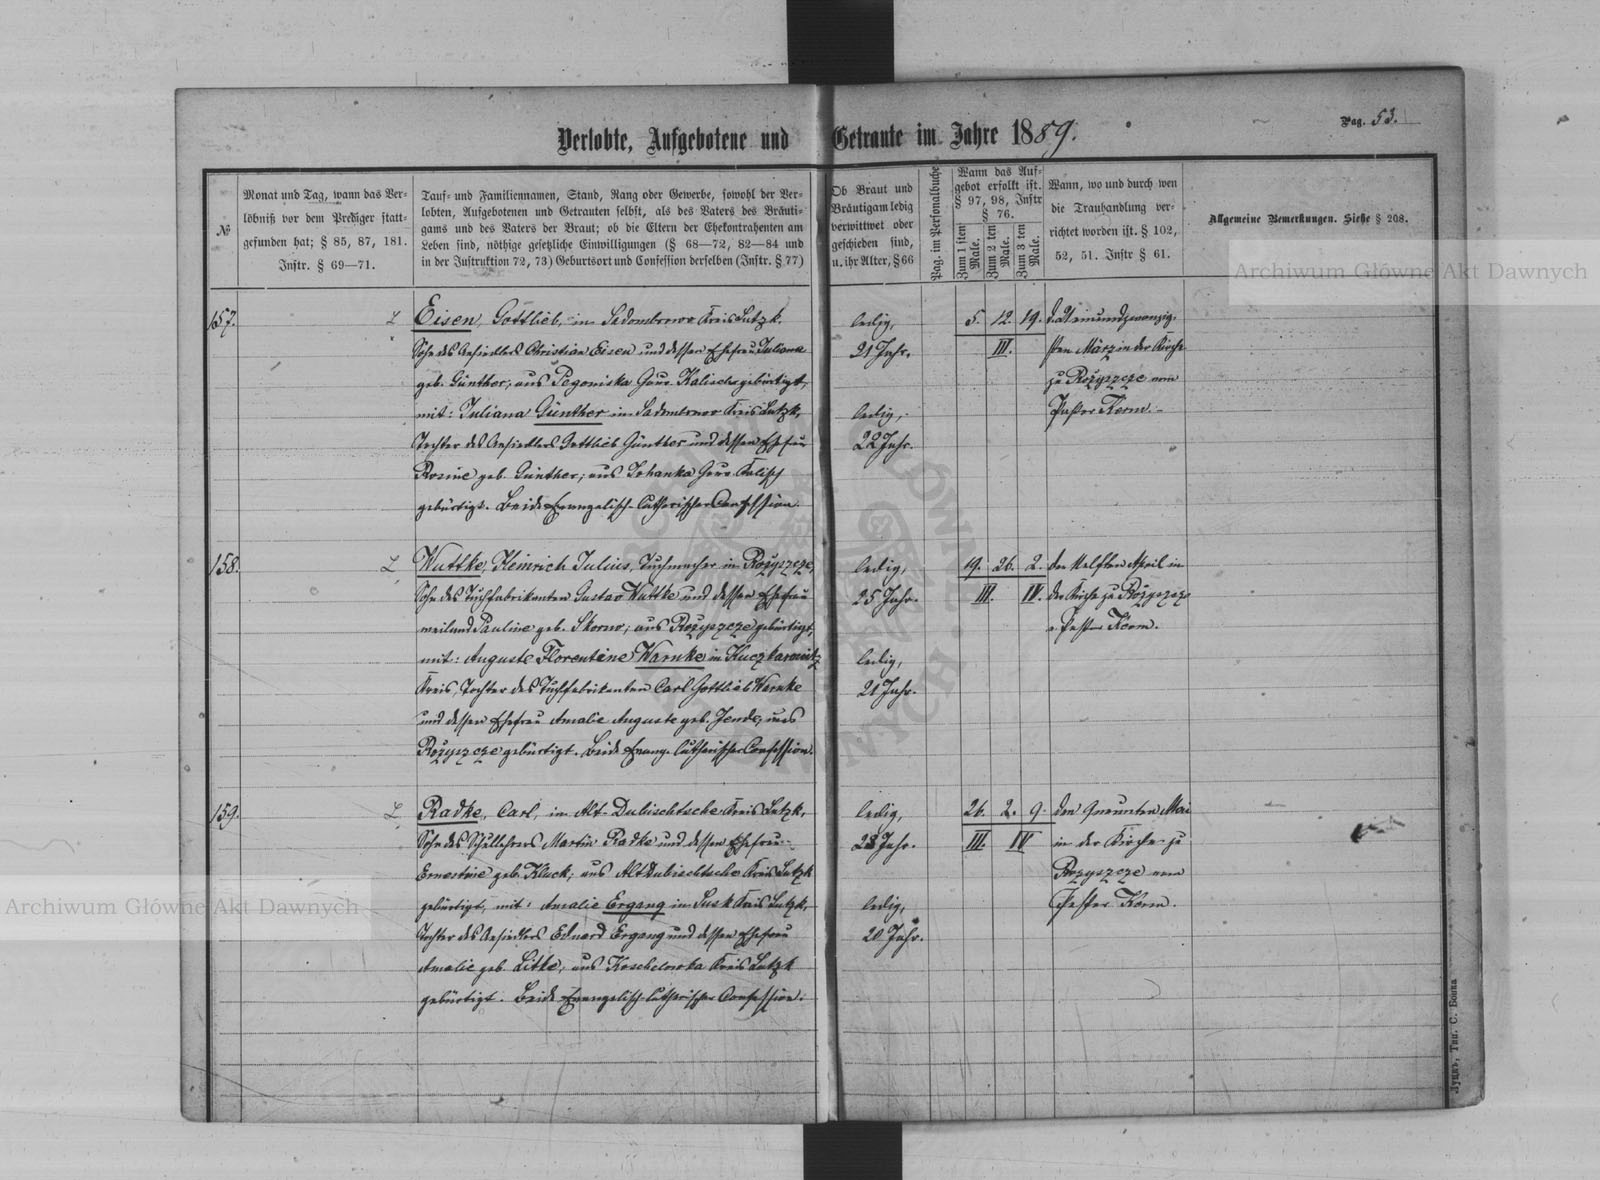 Verlobte, Aufgebotene und Getraute im Jahre 1889.
Pag. 53.
№
Monat und Tag, wann das Ver-
löbniß vor dem Prediger statt-
gefunden hat; § 85, 87, 181.
Instr. § 69—71.
Tauf- und Familiennamen, Stand, Rang oder Gewerbe, sowohl der Ver-
lobten, Aufgebotenen und Getrauten selbst, als des Vaters des Bräuti-
gams und des Vaters der Braut; ob die Eltern der Ehekontrahenten am
Leben sind, nöthige gesetzliche Einwilligungen (§ 68—72, 82—84 und
in der Instruktion 72, 73) Geburtsort und Confession derselben (Instr. § 77)
Ob Braut und
Bräutigam ledig
verwittwet oder
geschieden sind,
u. ihr Alter, § 66
Pag. im Personalbuche
Wann das Auf-
gebot erfolkt ist.
§ 97, 98, Instr
§ 76.
Zum 1 sten
Male.
Zum 2 ten
Male.
Zum 3 ten
Male.
Wann, wo und durch wen
die Trauhandlung ver-
richtet worden ist. § 102,
52, 51. Instr § 61.
Allgemeine Bemerkungen. Siehe § 208.
157.
L
Eisen, Gottlieb, in Sadombrowo Kreis Lutzk.
Sohn des Ansiedlers Christian Eisen und dessen Ehefrau Juliana
geb. Günther; aus Pegoniska Gouv. Kalisch gebürtigt,
mit: Juliana Günther in Sadombrowo Kreis Lutzk,
Tochter des Ansiedlers Gottlieb Günther und dessen Ehefrau
Rosine geb. Günther; aus Johanka Gouv. Kalisch
gebürtigt. Beide Evangelisch-Lutherischer Confession.
ledig,
21 Jahr.
ledig,
22 Jahr.
5. 12. 19.
III.
d. Einundzwanzig-
sten März in der Kirche
zu Rożyszcze vom
Pastor Kerm.
158.
L
Wuttke, Heinrich Julius, Tuchmacher in Rożyszcze,
Sohn des Tuchfabrikanten Gustav Wuttke und dessen Ehefrau
weiland Pauline geb. Skorno; aus Rożyszcze gebürtigt,
mit: Auguste Florentine Warnke in Kuczkarowitz
Kreis, Tochter des Tuchfabrikanten Carl Gottlieb Warnke
und dessen Ehefrau Amalie Auguste geb. Jende; aus
Rożyszcze gebürtigt. Beide Evang. Lutherischer Confession.
ledig,
25 Jahr.
ledig,
21 Jahr.
19. 26. 2.
III. IV.
den Elften April in
der Kirche zu Rożyszcze
v. Pastor Kerm.
159.
L
Radke, Carl, in Alt-Dubischtsche Kreis Lutzk,
Sohn des Schullehrers Martin Radke und dessen Ehefrau
Ernestine geb. Kluck; aus Alt Dubischtsche Kreis Lutzk
gebürtigt, mit: Amalie Ergang in Susk Kreis Lutzk,
Tochter des Ansiedlers Eduard Ergang und dessen Ehefrau
Amalie geb. Litke; aus Koschelowka Kreis Lutzk
gebürtigt. Beide Evangelisch-Lutherischer Confession.
ledig,
22 Jahr.
ledig,
20 Jahr.
26. 2. 9.
III. IV
den Neunten Mai
in der Kirche zu
Rozyszcze vom
Pastor Kerm.
Луцкъ, Тип. С. Бонка
Archiwum Główne Akt Dawnych
Archiwum Główne Akt Dawnych